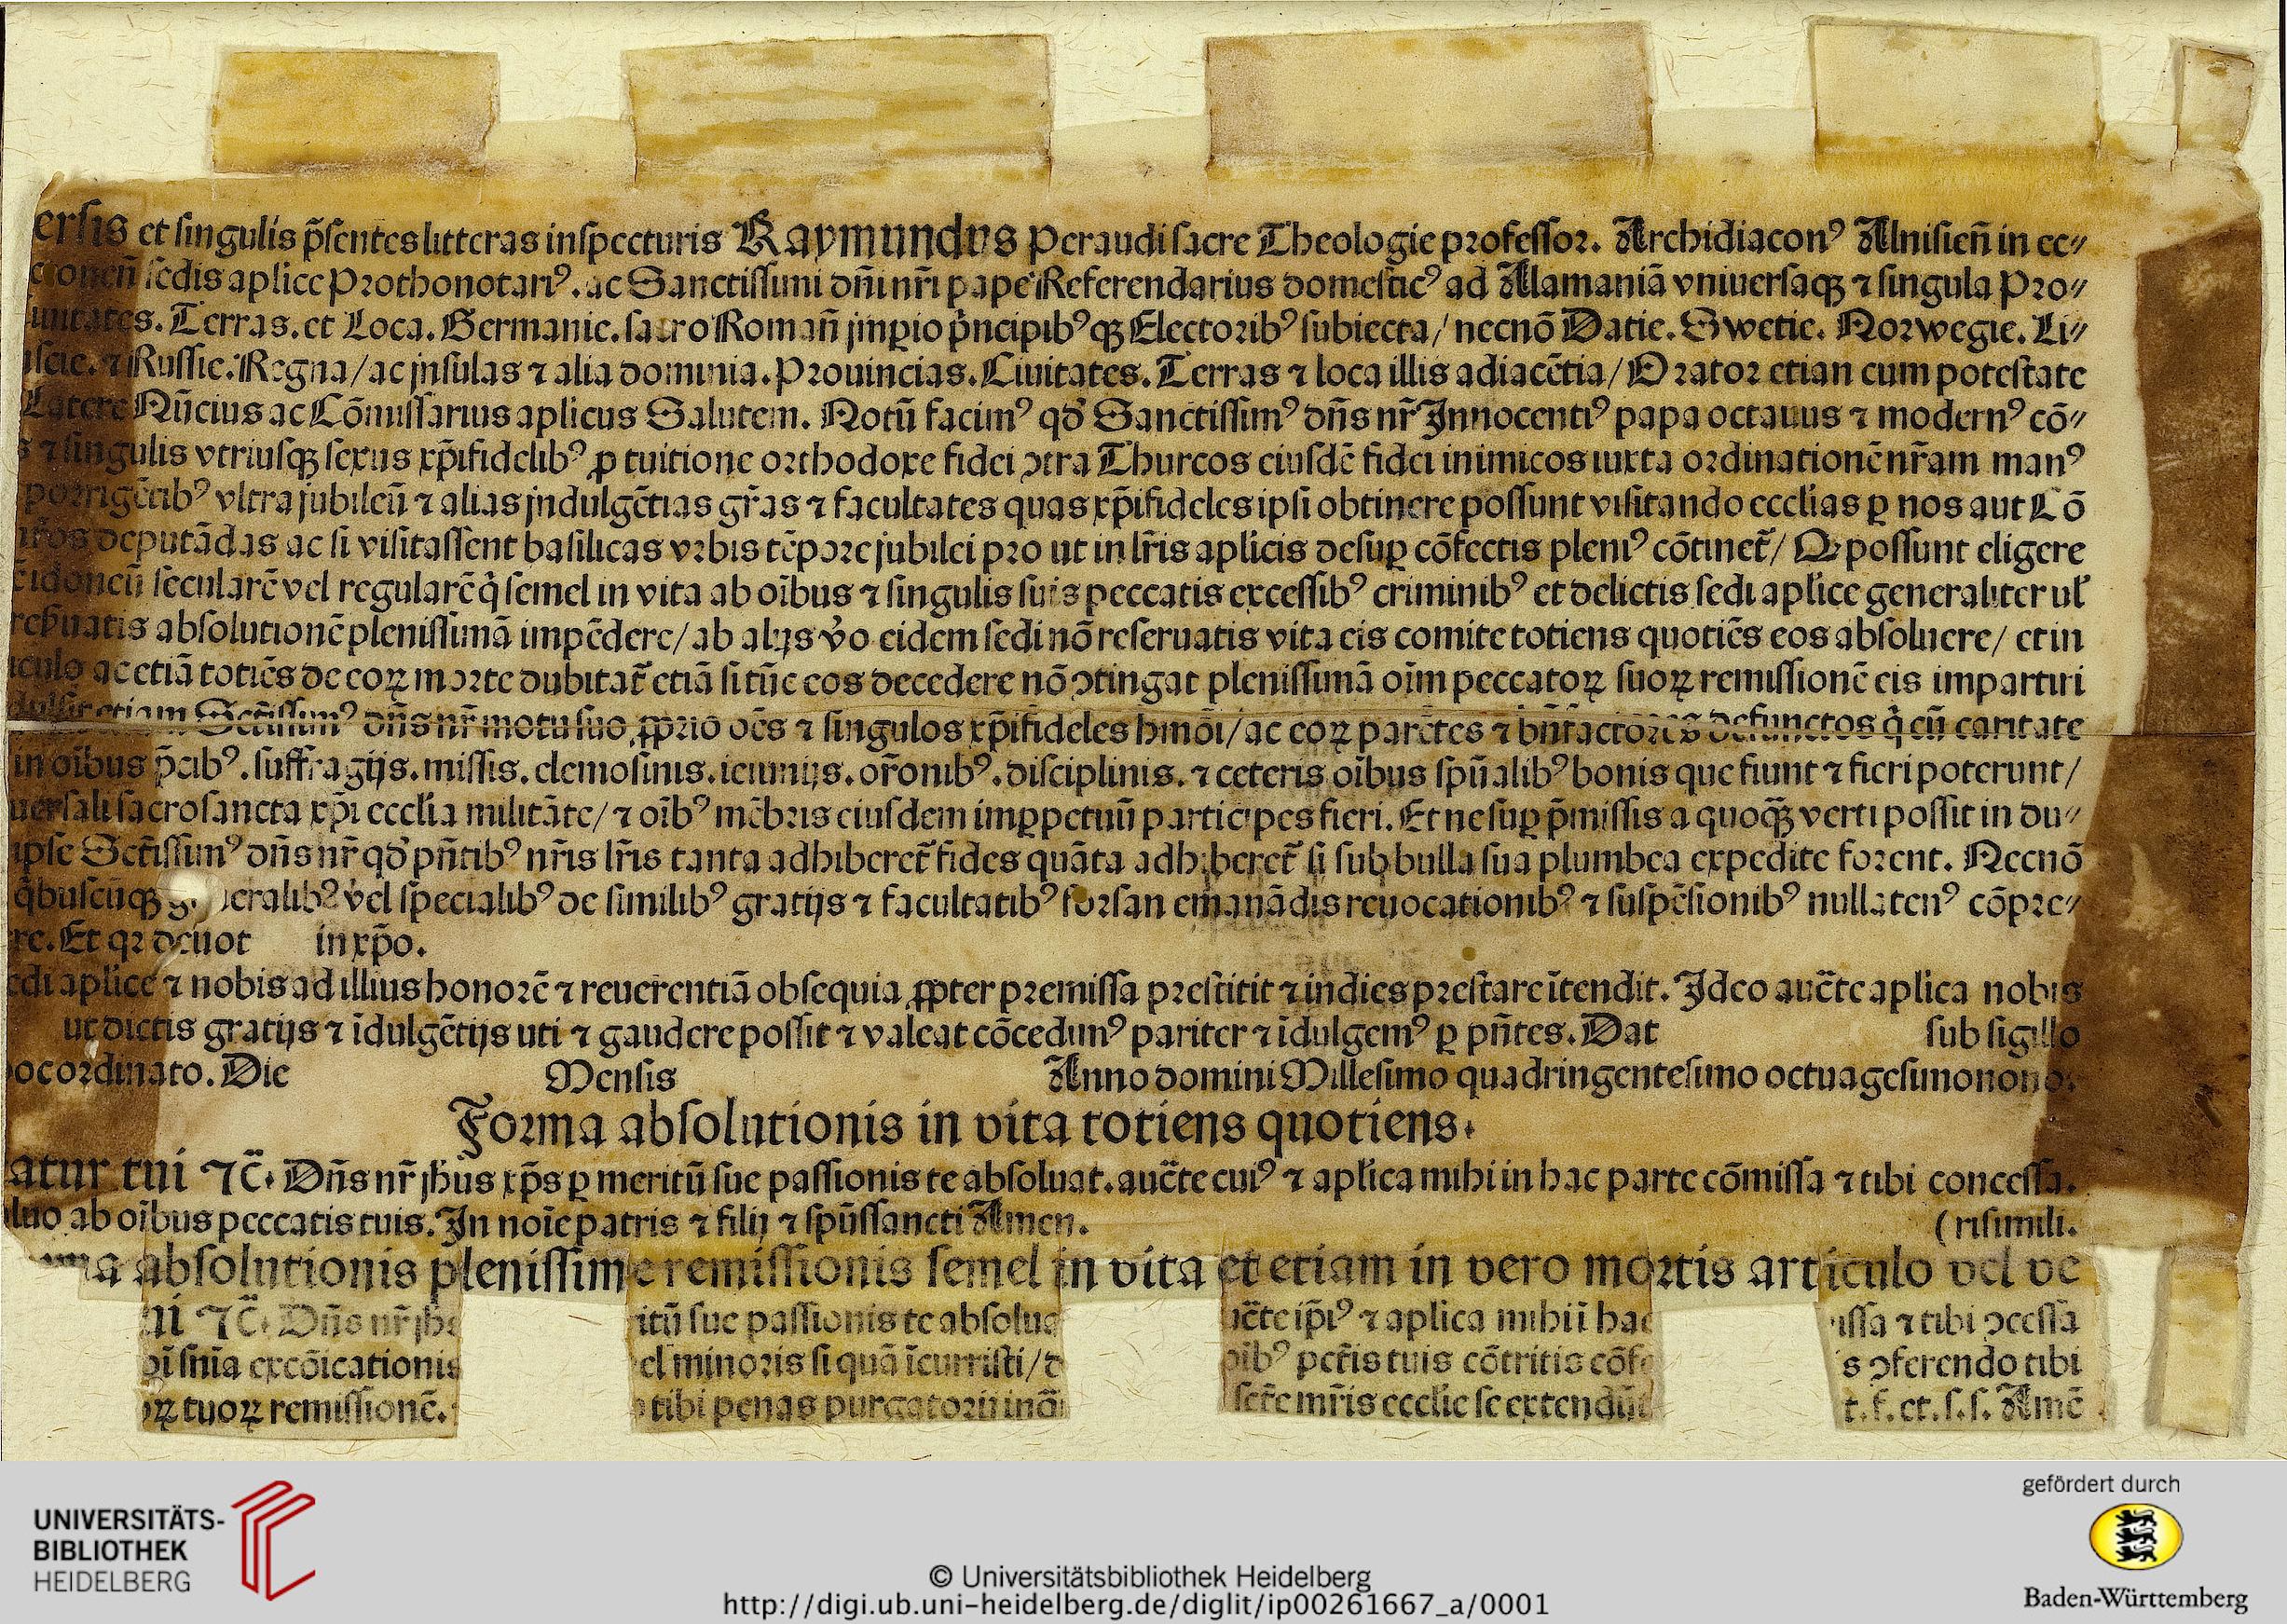 ersis et singulis p̃sentes litteras inspecturis Raymundus Peraudi sacre Theologie professor. Archidiaconꝰ Alnisieñ in ec⸗
ctoneñ sedis aplice Prothonotariꝰ. ac Sanctissimi dñi nr̃i pape Referendarius domesticꝰ ad Alamaniã vniuersaqꝫ ⁊ singula Pro⸗
. Terras. et Loca. Germanie. sacro Romañ jmꝑio p̃ncipibꝰ qꝫ Electoribꝰ subiecta/ necnõ Datie. Swetie. Norwegie. Li⸗
⁊ Russie. Regna/ ac jnsulas ⁊ alia dominia. Prouincias. Ciuitates. Terras ⁊ loca illis adiacẽtia/ Orator etian cum potestate
Latere Nũcius ac Cõmissarius aplicus Salutem. Notũ facimꝰ qd̛ Sanctissimꝰ dñs nr̃ Innocentiꝰ papa octauus ⁊ modernꝰ cõ⸗
s ⁊ singulis vtriusqꝫ sexus xp̃ifidelibꝰ ꝓ tuitione orthodoxe fidei ↄtra Thurcos eiusdẽ fidei inimicos iuxta ordinationẽ nr̃am manꝰ
porrigẽtibꝰ vltra jubileũ ⁊ alias jndulgẽtias gr̃as ⁊ facultates quas xp̃ifideles ipsi obtinere possunt visitando ecclias ꝑ nos aut Cõ
deputãdas ac si visitassent basilicas vrbis tẽpore jubilei pro ut in lr̃is aplicis desuꝑ cõfectis pleniꝰ cõtinet̃/ Qꝫ possunt eligere
idoneũ secularẽ vel regularẽ q̇ semel in vita ab oĩbus ⁊ singulis suis peccatis excessibꝰ criminibꝰ et delictis sedi aplice generaliter ul̛
absolutionẽ plenissimã impẽdere/ ab alijs v̛o eidem sedi nõ reseruatis vita eis comite totiens quotiẽs eos absoluere/ et in
ac etiã totiẽs de eoꝝ morte dubitat̃ etiã si tũc eos decedere nõ ↄtingat plenissimã oĩm peccatoꝝ suoꝝ remissionẽ eis impartiri
etiam Sct̃issimꝰ dñs nr̃ motu suo ꝓprio oẽs ⁊ singulos xp̃ifideles hmõi/ ac eoꝝ parẽtes ⁊ bñfactores defunctos q̇ cũ caritate
in oĩbus p̃cibꝰ. suffragijs. missis. elemosinis. ieiunijs. or̃onibꝰ. disciplinis. ⁊ ceteris oĩbus spũalibꝰ bonis que fiunt ⁊ fieri poterunt/
uersali sacrosancta xp̃i ecclia militãte/ ⁊ oĩbꝰ mẽbris eiusdem imꝑpetuũ participes fieri. Et ne suꝑ p̃missis a quoqꝫ verti possit in du⸗
ipse Sct̃issimꝰ dñs nr̃ qd̛ pñtibꝰ nr̃is lr̃is tanta adhiberet̃ fides quãta adhiberet̃ si sub bulla sua plumbea expedite forent. Necnõ
q̇buscũqꝫ generalibꝰ vel specialibꝰ de similibꝰ gratijs ⁊ facultatibꝰ forsan emanãdis reuocationibꝰ ⁊ suspẽsionibꝰ nullatenꝰ cõpre⸗
re. Et qꝛ deuot in xp̃o.
edi aplice ⁊ nobis ad illius honorẽ ⁊ reuerentiã obsequia ꝓpter premissa prestitit ⁊ indies prestare ĩtendit. Ideo auct̃e aplica nobis
ut dictis gratijs ⁊ ĩdulgẽtijs uti ⁊ gaudere possit ⁊ valeat cõcedimꝰ pariter ⁊ ĩdulgemꝰ ꝑ pñtes. Dat sub sigillo
ocordinato. Die Mensis Anno domini Millesimo quadringentesimo octuagesimonono.
Forma absolutionis in vita totiens quotiens.
atur tui ⁊c̃. Dñs nr̃ jhũs xp̃s ꝑ meritũ sue passionis te absoluat. auct̃e cuiꝰ ⁊ aplica mihi in hac parte cõmissa ⁊ tibi concessa.
luo ab oĩbus peccatis tuis. In noĩe patris ⁊ filij ⁊ spũssancti Amen. (risimili.
ma absolutionis plenissime remissionis semel in vita et etiam in vero mortis articulo vel ve
ui ⁊c̃. Dñs nr̃ jhs itũ sue passionis te absolua uct̃e ip̃iꝰ ⁊ aplica mihi ĩ hac issa ⁊ tibi ↄcessa
oĩ snĩa excõicationis el minoris si quã ĩcurristi/ d oĩbꝰ pct̃is tuis cõtritis cõfe s ↄferendo tibi
oꝝ tuoꝝ remissionẽ. tibi penas purgatorii inã sct̃e mr̃is ecclie se extendũt t. f. et. s. s. Amẽ
UNIVERSITÄTS-
BIBLIOTHEK
HEIDELBERG
© Universitätsbibliothek Heidelberg
http://digi.ub.uni-heidelberg.de/diglit/ip00261667_a/0001
gefördert durch
Baden-Württemberg